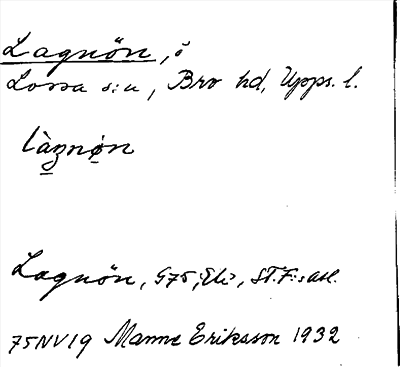 Lagnön, ö
Lossa s:n, Bro hd, Upps. l.
làgnøn
Lagnön, G75,
75NV19 Manne Eriksson 1932